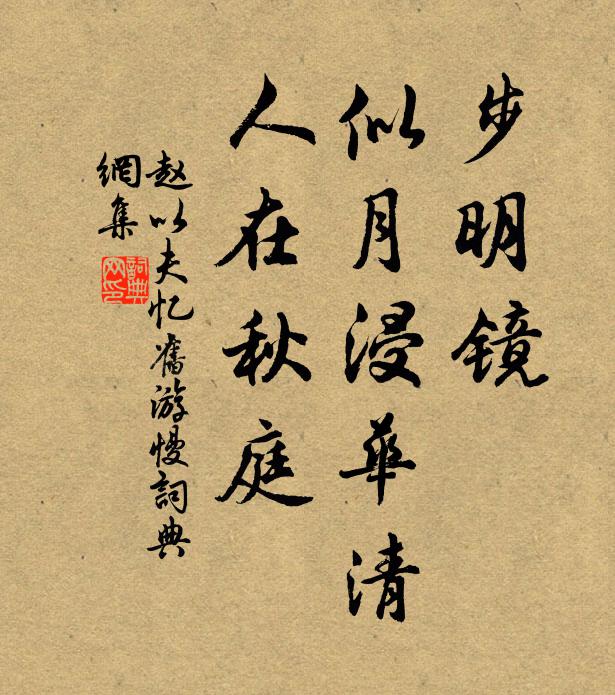 步明镜
似月浸华清
人在秋庭
赵以夫忆舊游慢詞典
網集
詞典
网印